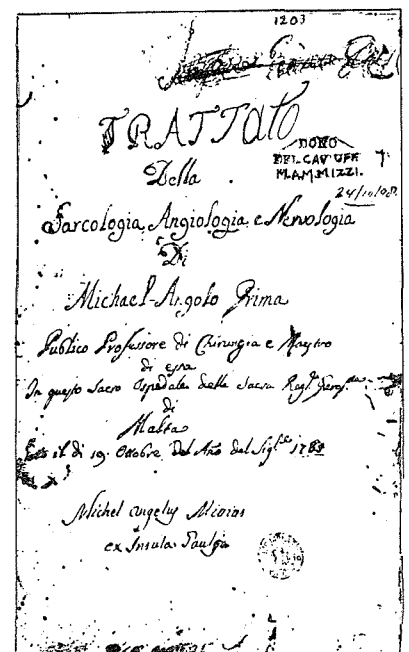 1203
TRATTato
DONO
DEL CAV. UFF
M.A.M. MIZZI.
Della
24/10/08.
Sarcologia, Angiologia, e Nervologia
Di
Michael-Angolo Grima
Publico Professore di Chirurgia e Maestro
di essa
In questo Sacro Ospedale della Sacra
di
Malta
il di 19 Ottobre Del Año del Sig.re
Michel angelus
ex Insula